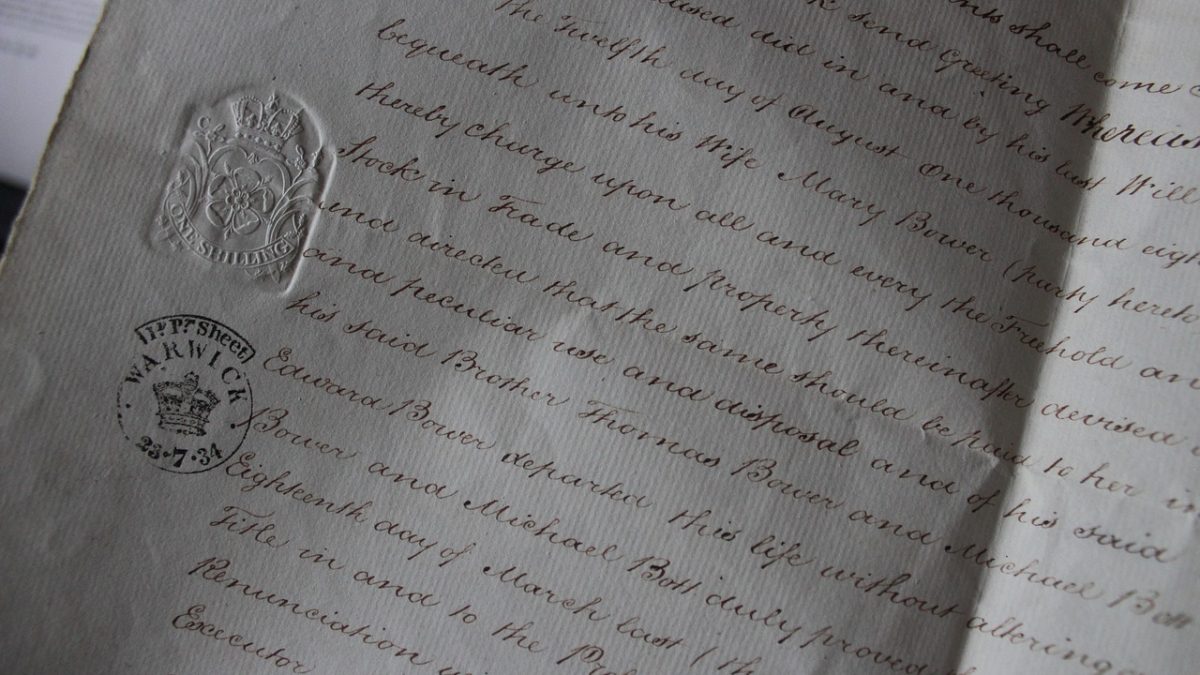 ents shall come
send Greeting Whereas
eased did in and by his last Will
The Twelfth day of August One thousand eigh
bequeath unto his Wife Mary Bower (party hereto
thereby charge upon all and every the Freehold an
Stock in Trade and property thereinafter devised
and directed that the same should be paid to her in
and peculiar use and disposal and of his said
his said Brother Thomas Bower and Michael Bott
Edward Bower departed this life without altering
Bower and Michael Bott duly proved
Eighteenth day of March last (th
Title in and to the
Renunciation
Executor
ONE SHILLING
Pr. Sheet
WARWICK
23.7.34